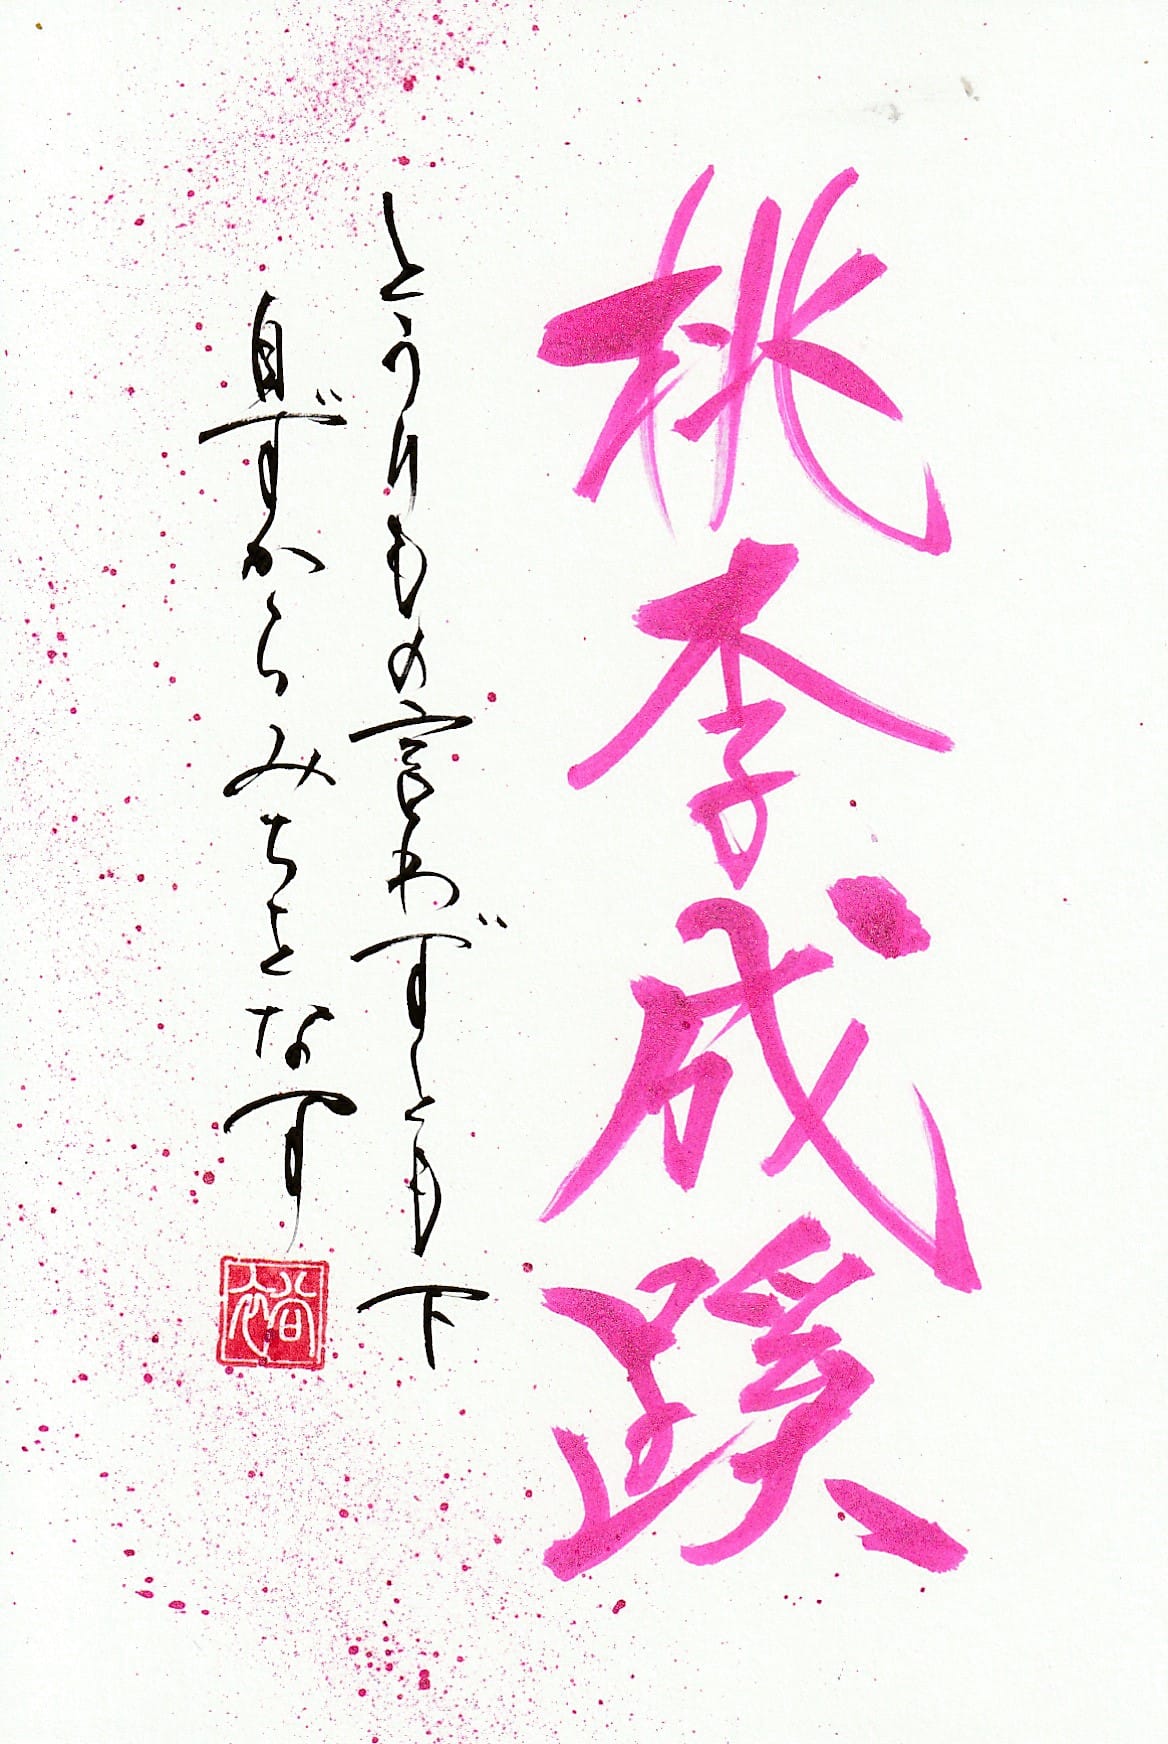 桃李成蹊
とうりもの言わずとも下
自ずからみちをなす